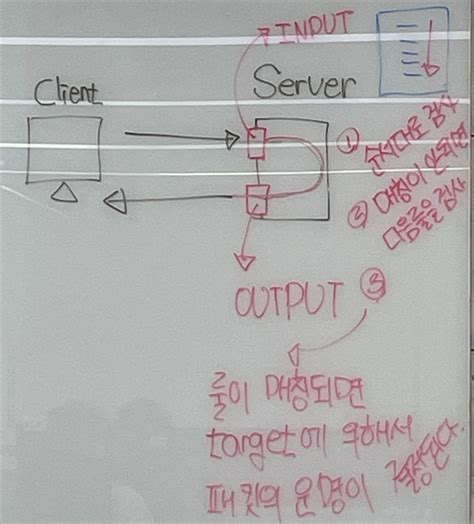 INPUT
Client
Server
① 순서대로 검사
② 매칭이 안되면
다음룰을 검사
OUTPUT ③
룰이 매칭되면
target에 의해서
패킷의 운명이 결정된다.